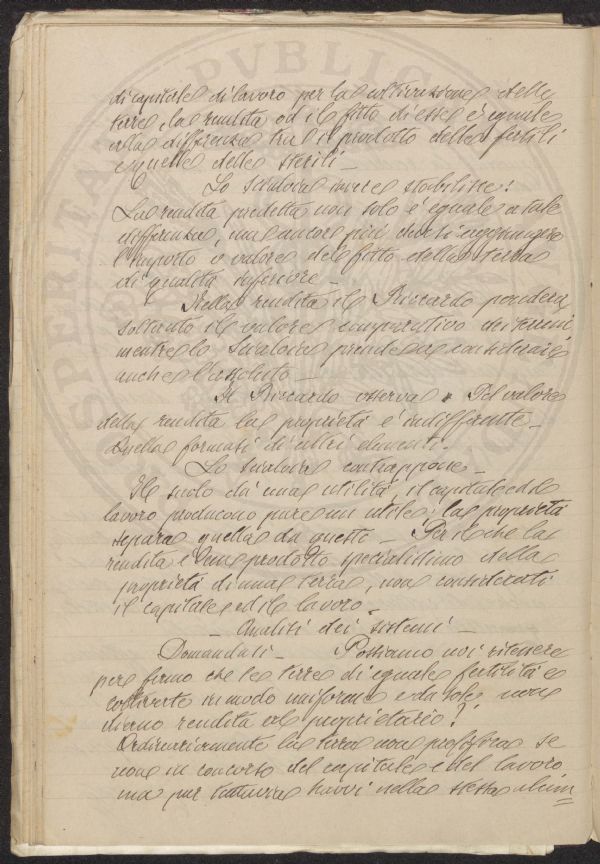 di capitale di lavoro per la coltivazione delle
terre, la rendita od il fitto di esse è eguale
alla differenza tra il prodotto delle fertili
e quelle delle sterili _
Lo Scialoia invece stabilisce:
La rendita predetta non solo è eguale a tale
differenza, ma ancora più che si aggiunga
l'importo o valore del fitto della terra
di qualità inferiore _
Nella rendita il Riccardo pondera
soltanto il valore comparativo dei terreni
mentre lo Scialoia prende a considerare
anche l'assoluto _
Il Riccardo osserva: Pel valore
della rendita la proprietà è indifferente _
Quella formasi di altri elementi.
Lo Scialoia contrappone _
Il suolo dà una utilità, il capitale ed il
lavoro producono pure un utile; la proprietà
separa quella da queste _ Per il che la
rendita è un prodotto specialissimo della
proprietà di una terra, non considerati
il capitale ed il lavoro _
_ Analisi dei sistemi _
Domandasi _ Possiamo noi ritenere
per fermo che le terre di eguale fertilità e
coltivate in modo uniforme e da sole non
diano rendita al proprietario?
Ordinariamente la terra non prolifica se
non in concorso del capitale e del lavoro
ma pur tuttavia havvi nella stessa alcun=